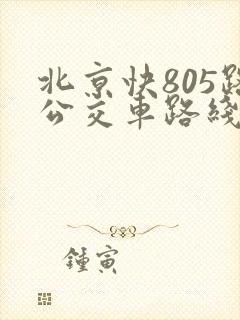 北京快805路
公交車路綫
鍾寅